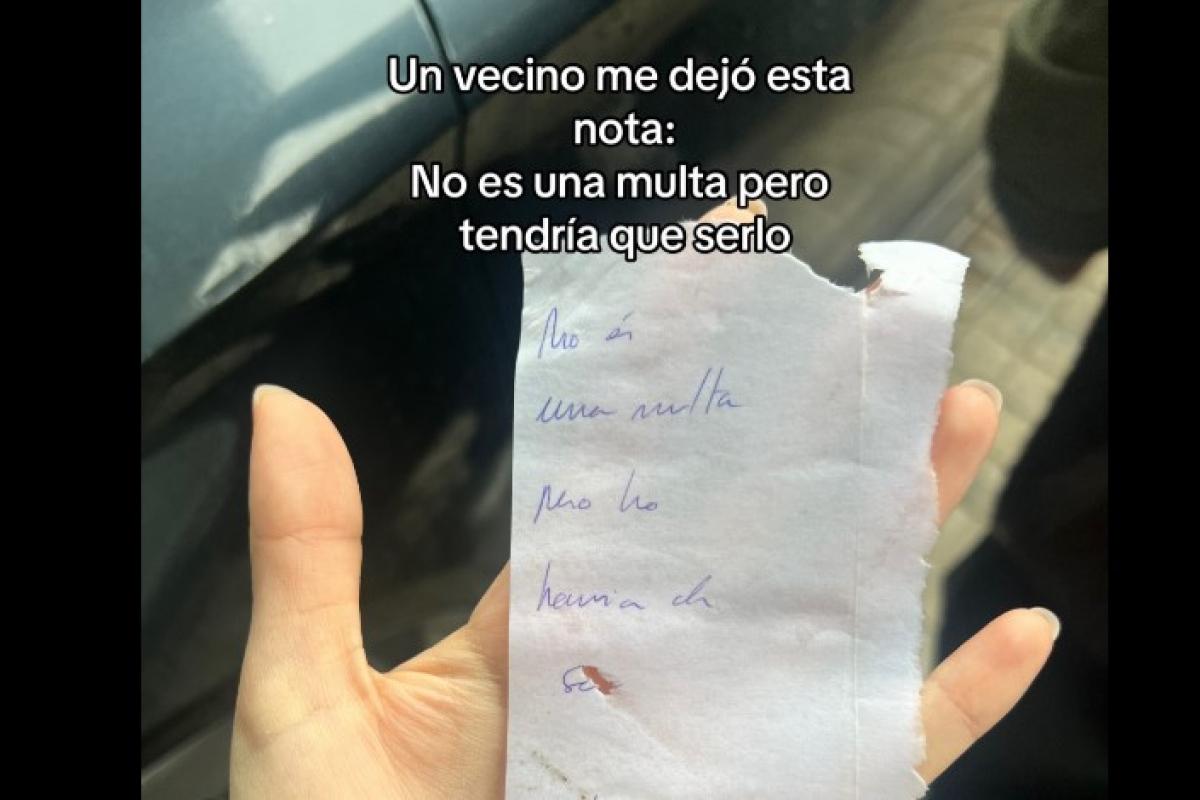 Un vecino me dejó esta
nota:
No es una multa pero
tendría que serlo
No és
una multa
però ho
hauria de
ser